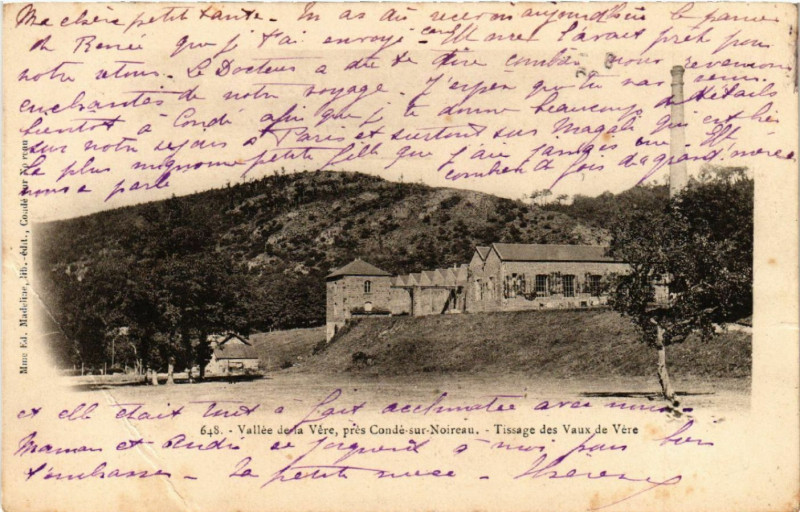 Ma chère petite tante. Tu as dû recevoir aujourd'hui le panier
de Renée que j't'ai envoyé. Elle l'avait prêt pour
notre retour. Le Docteur a dû te dire combien nous revenions
enchantés de notre voyage. J'espère que tu vas venir
bientôt à Condé afin que je te donne beaucoup de détails
sur notre séjour à Paris et surtout sur Magali qui est bien
la plus mignonne petite fille que j'aie jamais vue. Elle
nous a parlé combien de fois de grand'mère
Mme Ed. Madeline, lib.-édit., Condé-sur-Noireau
et elle était tout à fait acclimatée avec nous.
648. - Vallée de la Vère, près Condé-sur-Noireau. - Tissage des Vaux de Vère
Maman et André se joignent à moi pour bien
t'embrasser - Ta petite nièce -